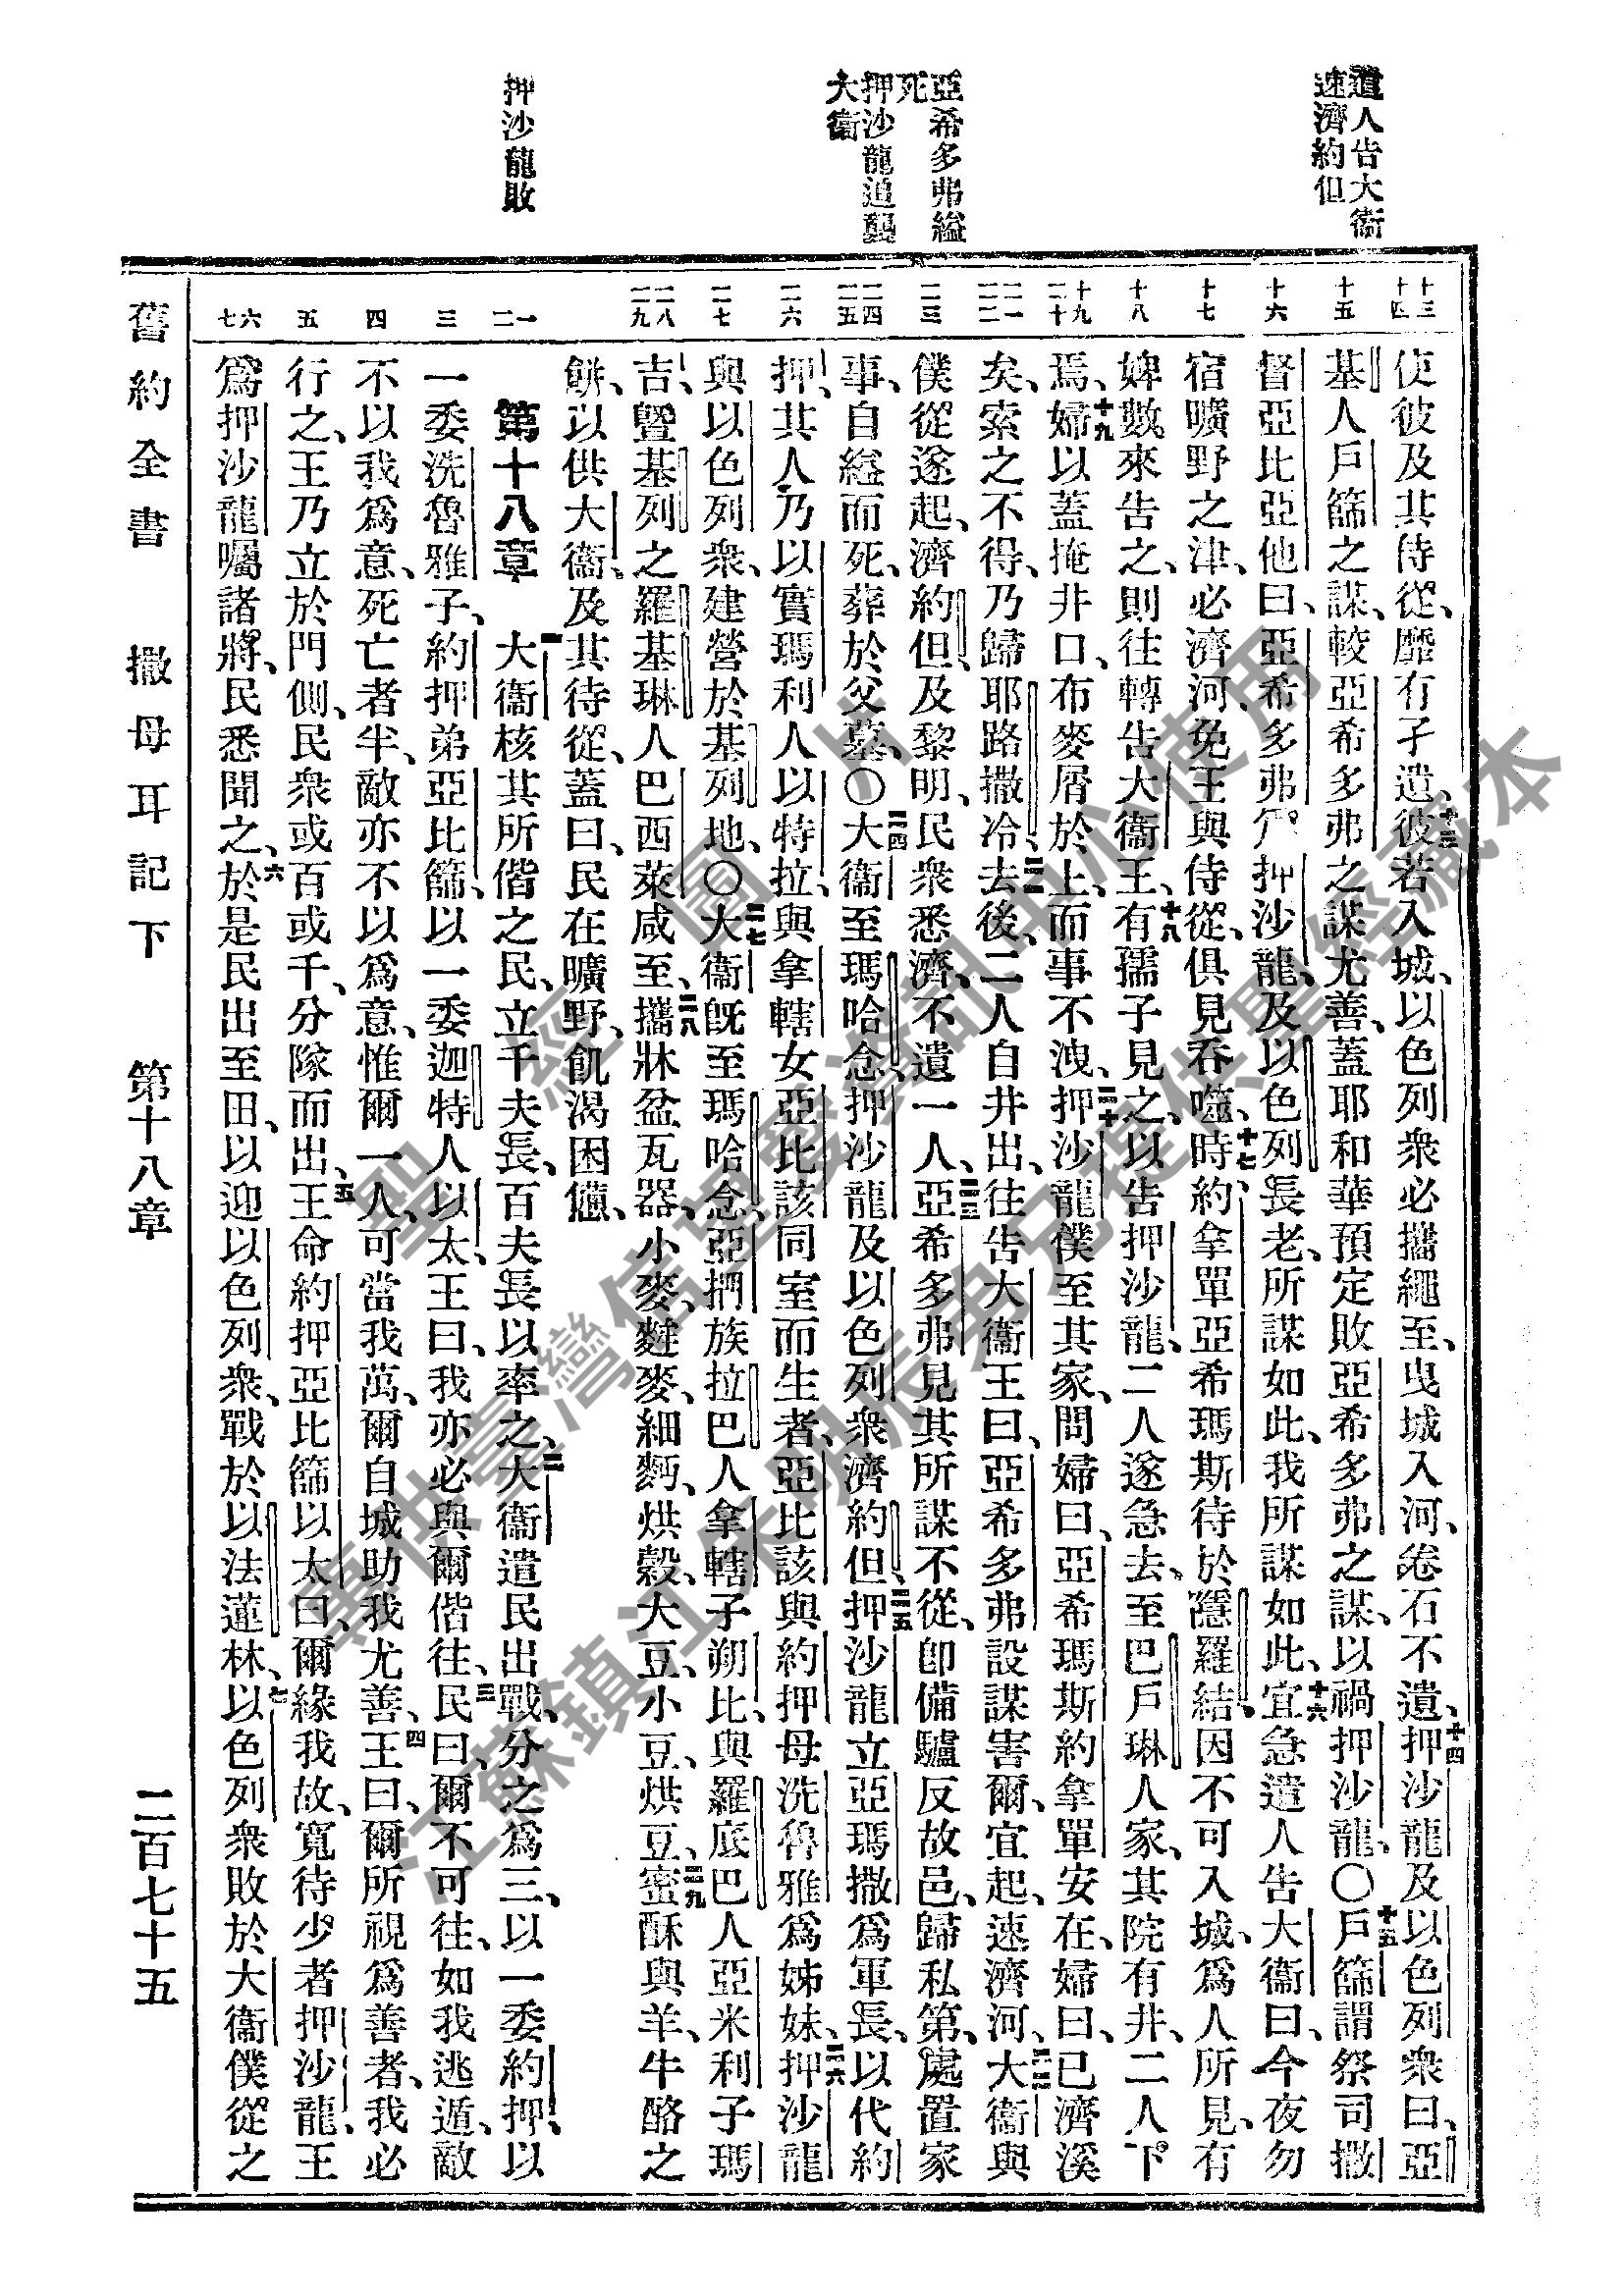 遣人告大衞
速濟約但
亞希多弗縊
死
押沙龍追襲
大衞
押沙龍敗
十三
十四
十五
十六
十七
十八
十九
二十
二一
二二
二三
二四
二五
二六
二七
二八
二九
一
二
三
四
五
六
七
使彼及其侍從、靡有孑遺、十三彼若入城、以色列衆必攜繩至、曳城入河、卷石不遺、十四押沙龍及以色列衆曰、亞
基人戶篩之謀、較亞希多弗之謀尤善、蓋耶和華預定敗亞希多弗之謀、以禍押沙龍、〇十五戶篩謂祭司撒
督亞比亞他曰、亞希多弗爲押沙龍、及以色列長老、所謀如此、我所謀如此、十六宜急遣人告大衞曰、今夜勿
宿曠野之津、必濟河、免王與侍從、俱見吞噬、十七時、約拿單亞希瑪斯待於隱羅結、因不可入城、爲人所見、有
婢數來告之、則往轉告大衞王、十八有孺子見之、以告押沙龍、二人遂急去、至巴戶琳人家、其院有井、二人下
焉、十九婦以蓋掩井口、布麥屑於上、而事不洩、二十押沙龍僕至其家、問婦曰、亞希瑪斯約拿單安在、婦曰、已濟溪
矣、索之不得、乃歸耶路撒冷、二一去後、二人自井出、往告大衞王曰、亞希多弗設謀害爾、宜起、速濟河、二二大衞與
僕從遂起、濟約但、及黎明、民衆悉濟、不遺一人、二三亞希多弗見其所謀不從、卽備驢反故邑、歸私第、處置家
事、自縊而死、葬於父墓、〇二四大衞至瑪哈念、押沙龍及以色列衆濟約但、二五押沙龍立亞瑪撒爲軍長、以代約
押、其人乃以實瑪利人以特拉、與拿轄女亞比該同室而生者、亞比該與約押母洗魯雅爲姊妹、二六押沙龍
與以色列衆、建營於基列地、〇二七大衞旣至瑪哈念、亞捫族拉巴人拿轄子朔比、與羅底巴人亞米利子瑪
吉、曁基列之羅基琳人巴西萊咸至、二八攜牀盆瓦器、小麥、麰麥、細麪、烘穀、大豆、小豆、烘豆、二九蜜酥與羊、牛酪之
餅、以供大衞、及其待從、蓋曰、民在曠野、飢渴困憊、
第十八章 一大衞核其所偕之民、立千夫長、百夫長以率之、二大衞遣民出戰、分之爲三、以一委約押、以
一委洗魯雅子、約押弟亞比篩、以一委迦特人以太、王曰、我亦必與爾偕往、三民曰、爾不可往、如我逃遁、敵
不以我爲意、死亡者半、敵亦不以爲意、惟爾一人、可當我萬、爾自城助我尤善、四王曰、爾所視爲善者、我必
行之、王乃立於門側、民衆或百或千、分隊而出、五王命約押亞比篩以太曰、爾緣我故、寬待少者押沙龍、王
爲押沙龍囑諸將、民悉聞之、六於是民出至田、以迎以色列衆、戰於以法蓮林、七以色列衆敗於大衞僕從之
舊約全書 撒母耳記下 第十八章 二百七十五
聖經圖片
專供臺灣信望愛資訊中心使用
江蘇鎮江朱明辰弟兄提供聖經藏本